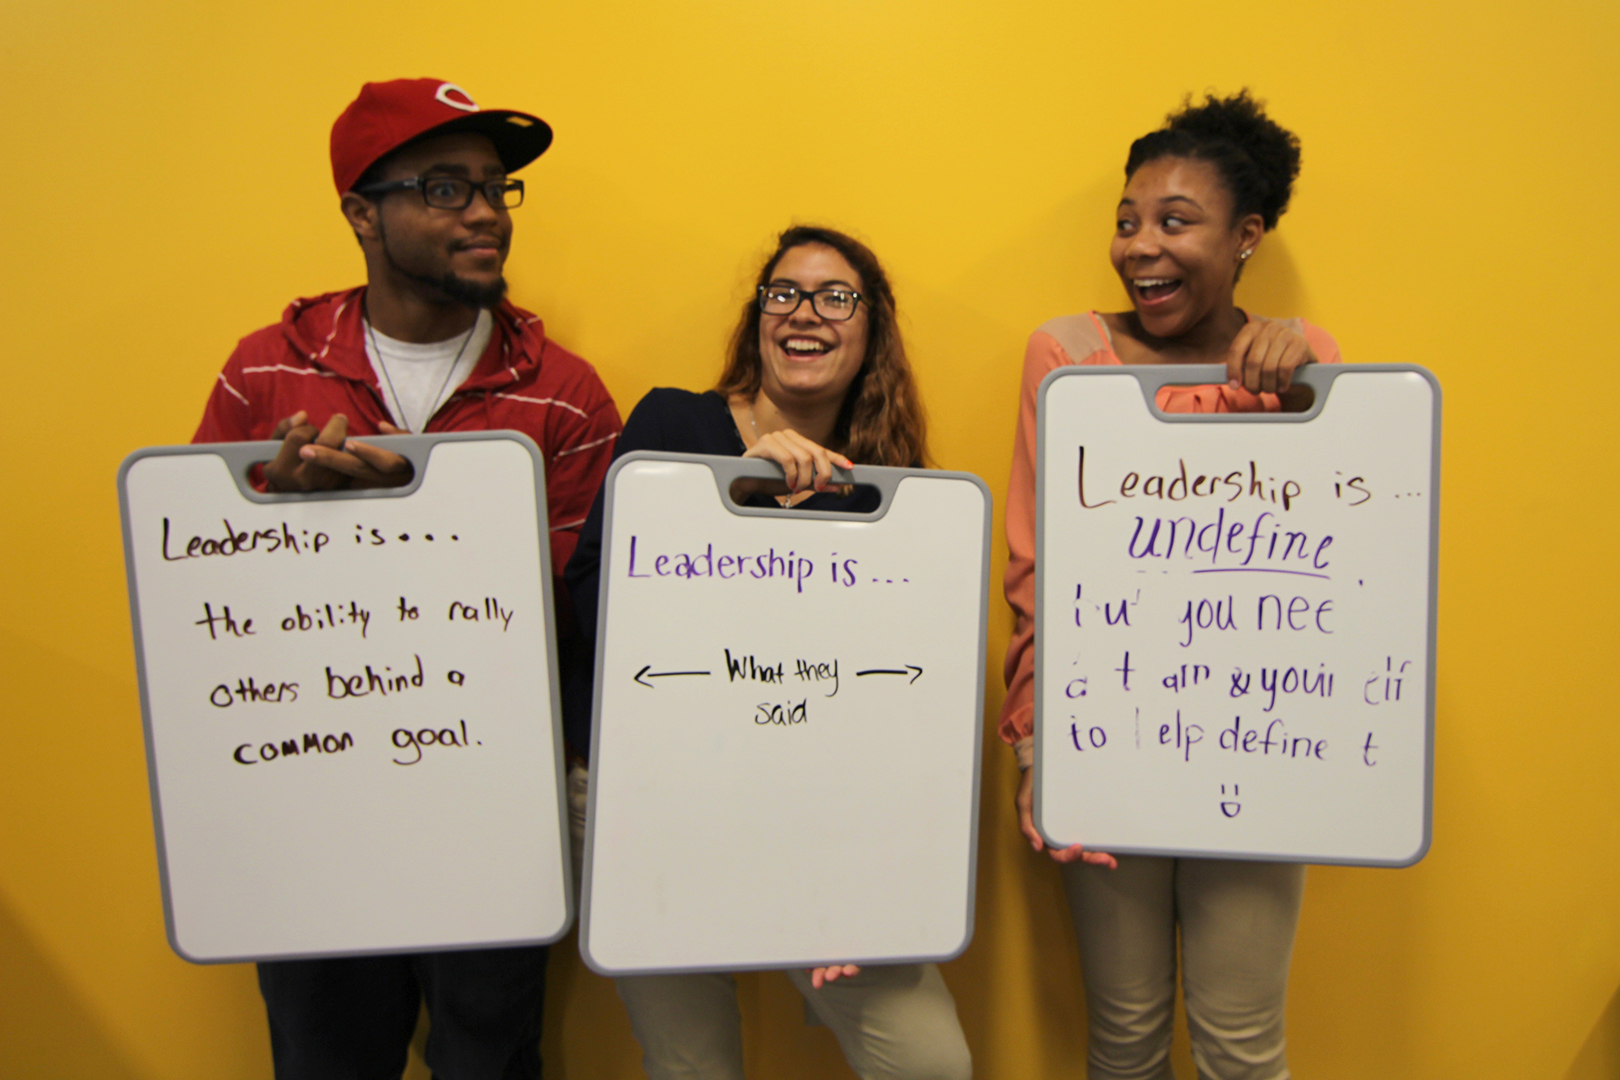 Leadership is...
the ability to rally
others behind a
common goal.
Leadership is...
← What they →
said
Leadership is...
undefine
you nee
& 
to elp define t